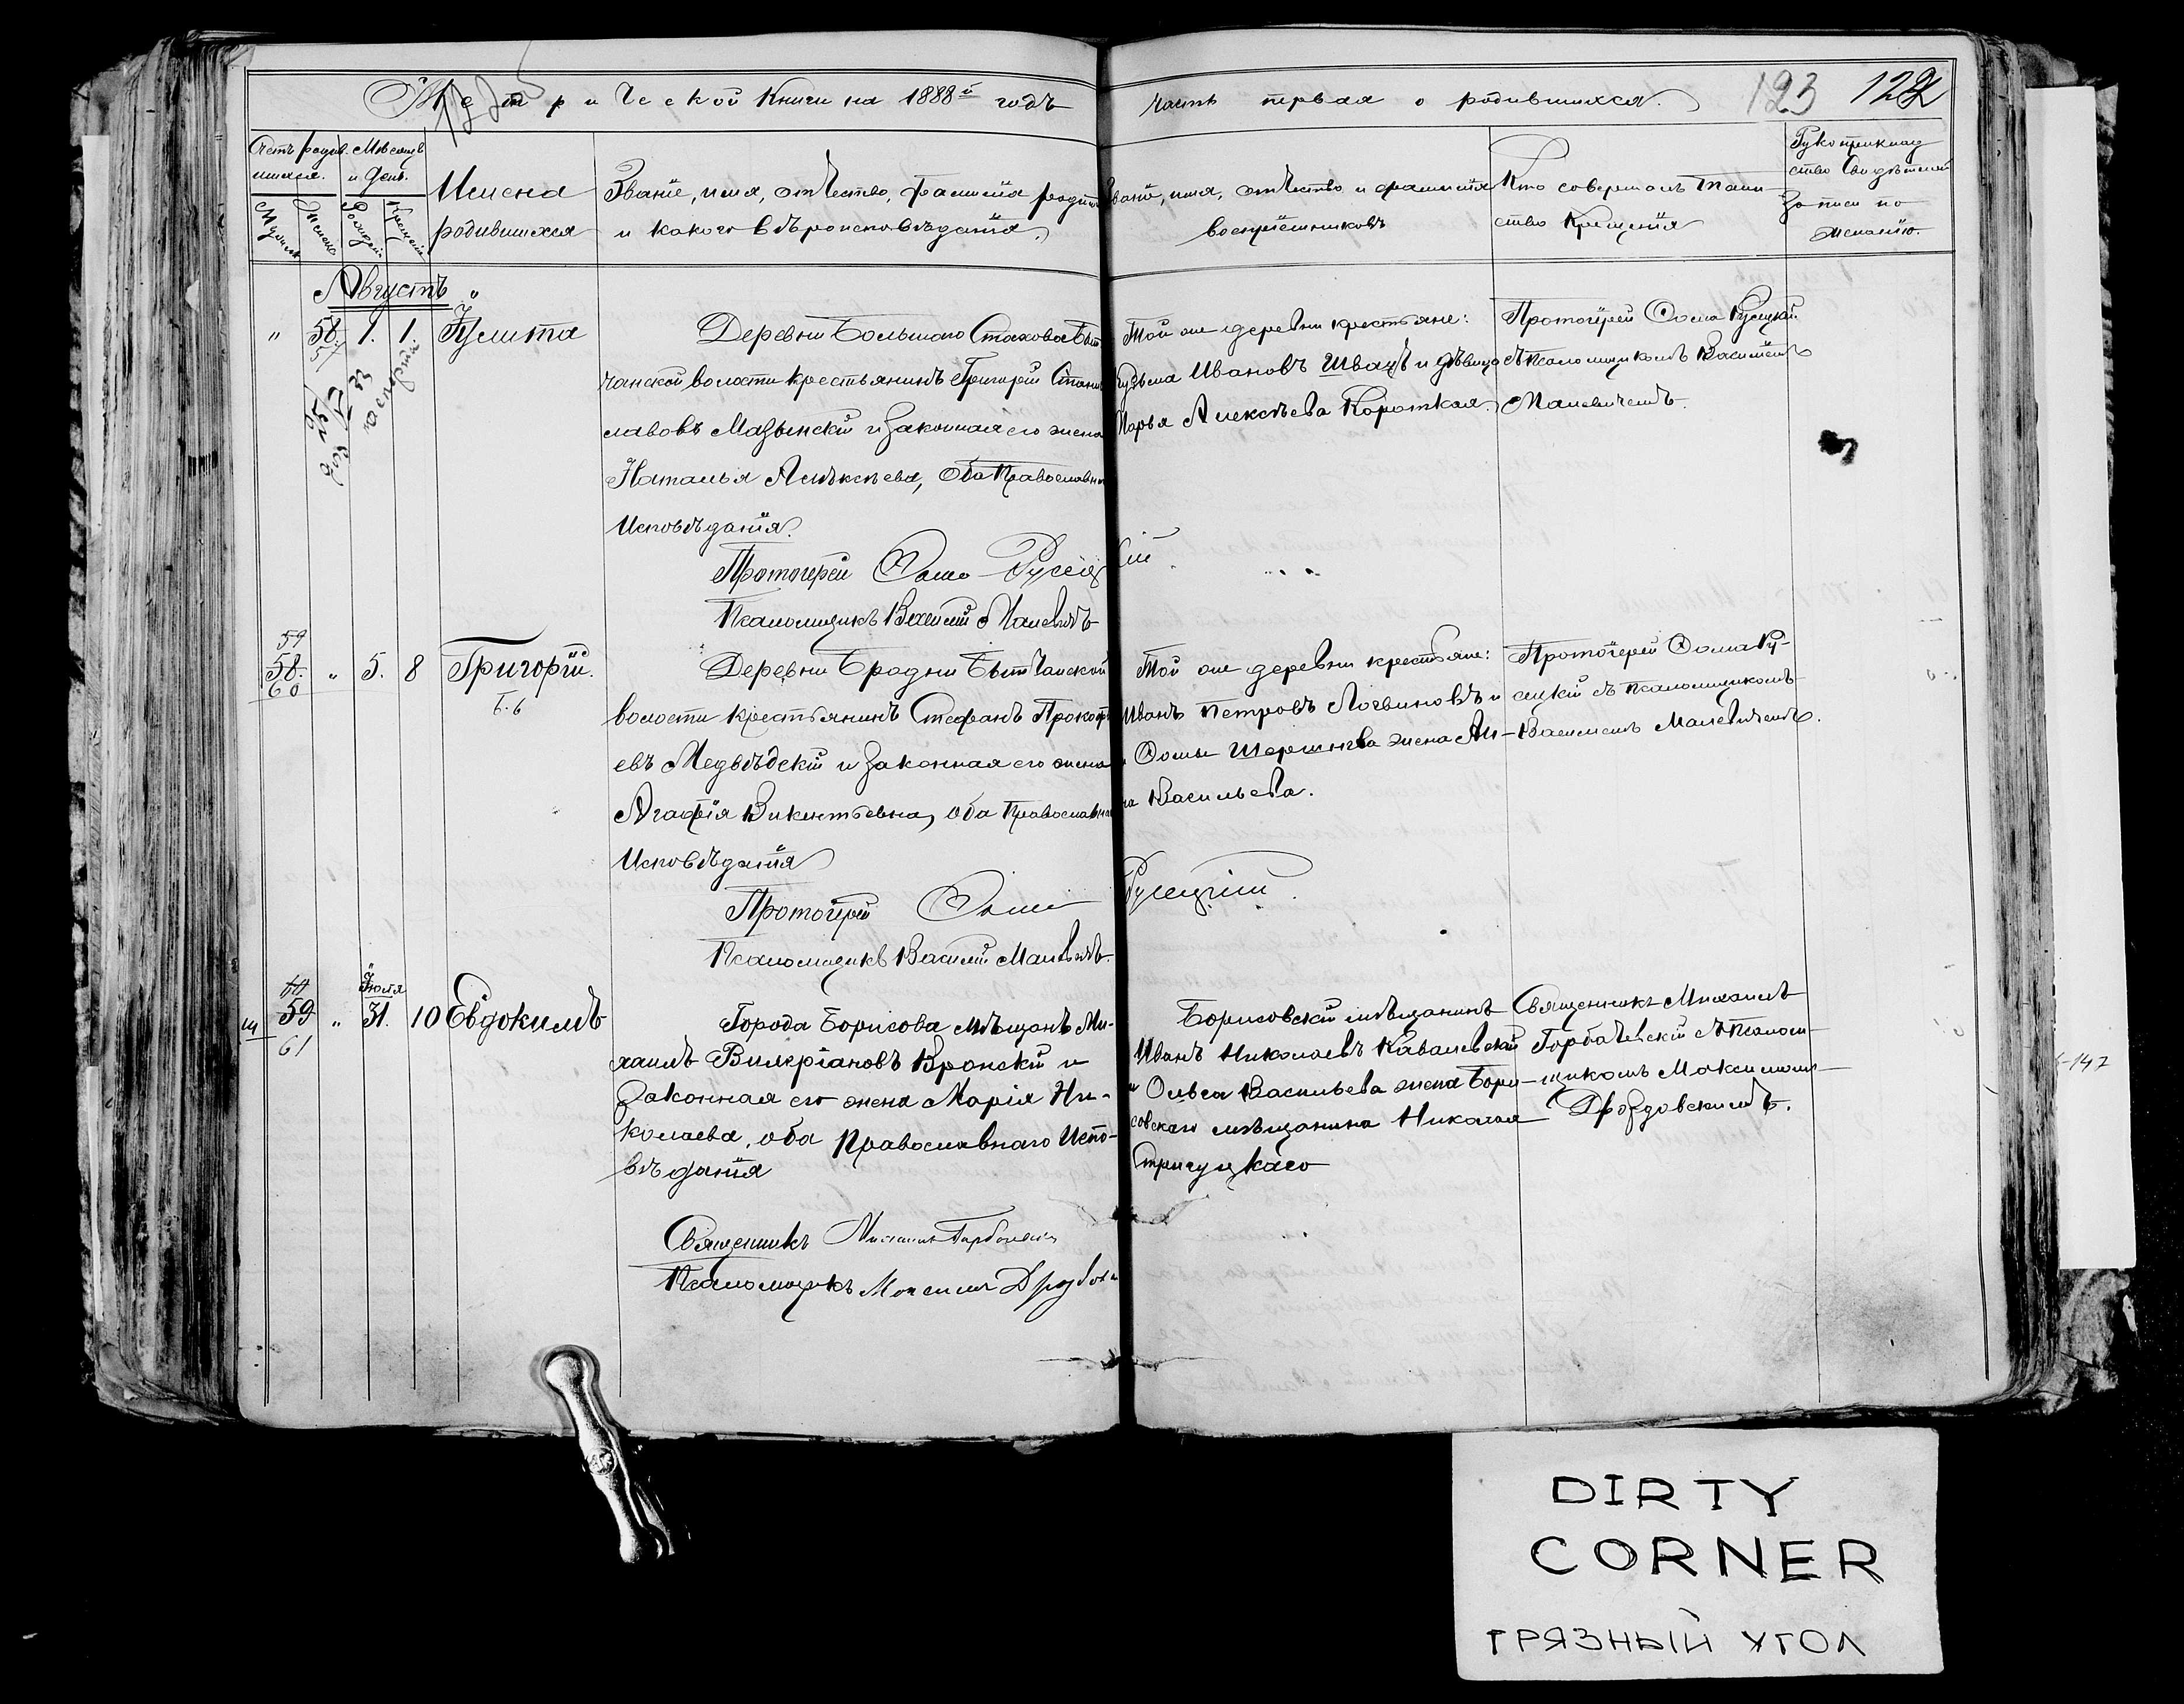 Метрической Книги на 1888й годъ
часть первая о родившихся.
123 122
Счетъ родив-
шихся.
Мѣсяцъ
и день.
Имена
родившихся
Званіе, имя, отчество, фамилія родит
и какого вѣроисповѣданія.
Званіе, имя, отчество и фамилія
воспріемниковъ
Кто совершалъ таин-
ство Крещенія
Рукоприклад
ство Свидѣтелей
записи по
желанію.
Августъ
" 58. 1. 1. Іулита
57
59
Деревни Большаго Стахова Быт
чанской волости крестьянинъ Григорій Стани
славовъ Мазынскій и законная его жена
Наталья Алѣксѣева, оба Православн
Исповѣданія.
Протоіерей Фома Русецкій
Псаломщикъ Василій Малевичъ
Той же деревни крестьяне:
Кузьма Ивановъ Швацъ и дѣвица
Марья Алексѣева Короткая.
Протоіерей Фома Русецкій
съ псаломщикомъ Василіемъ
Малевичемъ.
59
58. " 5. 8 Григорій.
60
Деревни Бродни Бытчанской
волости крестьянинъ Стефанъ Прокоф
евъ Медвѣдскій и законная его жена
Агафія Викентьевна, оба Православна
Исповѣданія
Протоіерей Фома Русецкій.
Псаломщикъ Василій Малевичъ.
Той же деревни крестьяне:
Иванъ Петровъ Логвиновъ и
Фомы Шершнева жена Ан-
на Васильева.
Протоіерей Фома Ру-
сецкій съ псаломщикомъ
Василіемъ Малевичемъ.
60 Іюля
59 " 31. 10 Евдокимъ
61
Города Борисова мѣщанъ Ми-
хаилъ Валеріановъ Вронскій и
законная его жена Марія Ни-
колаева, оба Православнаго Испо-
вѣданія
Священникъ Михаилъ Горбачевскій
Псаломщикъ Максимъ Дроздов
Борисовскій мѣщанинъ
Иванъ Николаевъ Кавалевскій
и Ольга Васильева жена Бори-
совскаго мѣщанина Николая
Стригуцкаго
Священникъ Михаилъ
Горбачевскій съ Псалом-
щикомъ Максимомъ
Дроздовскимъ.
-147
DIRTY
CORNER
ГРЯЗНЫЙ УГОЛ